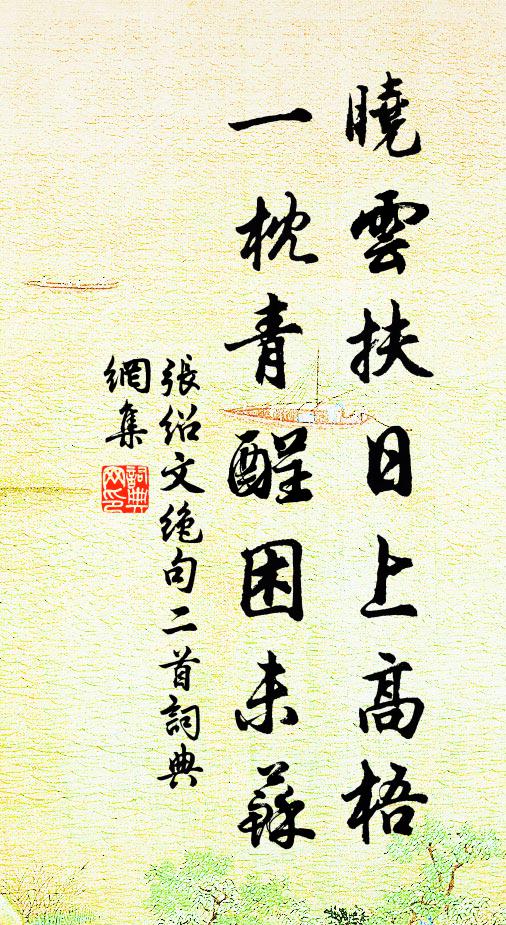 曉雲扶日上高梧
一枕青酲困未蘇
張紹文絕句二首詞典
網集
詞典
網印